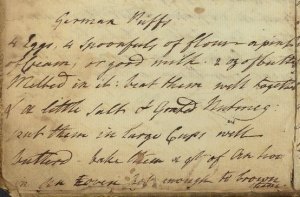 German Puffs
4 Eggs, 4 spoonfuls of flour a pint
of Cream, or good milk. 2 oz of butter
Melted in it: beat them well together
& a little Salt & Grated Nutmeg:
put them in large Cups well
butterd. bake them a qr of An hour
in an Oven hot enough to brown
them